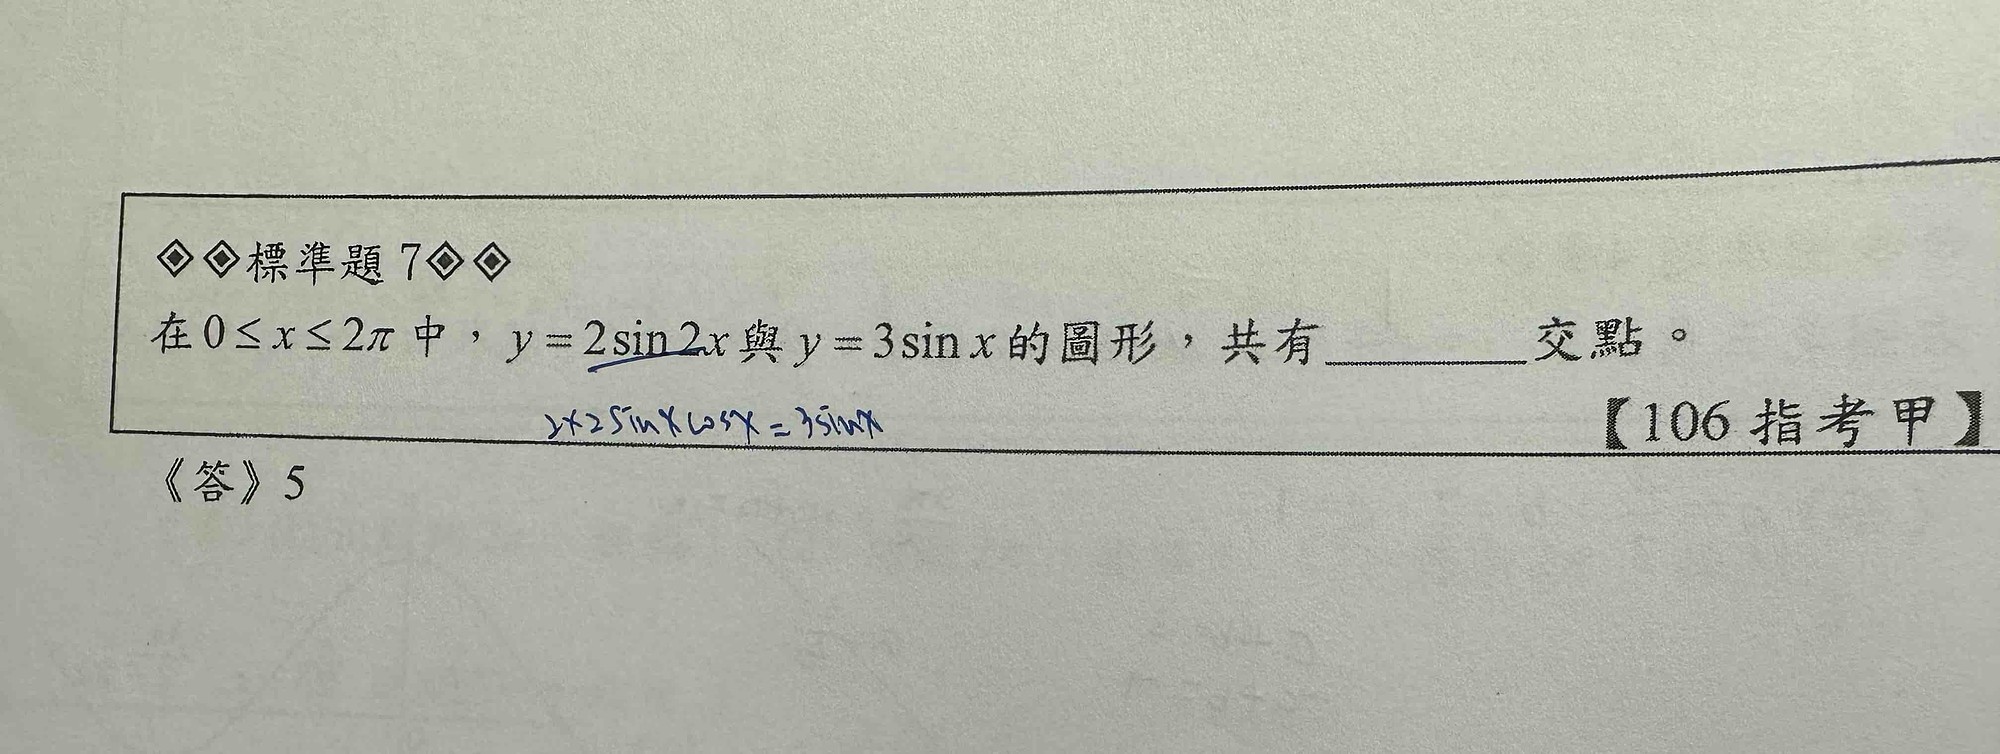 ◈◈標準題 7◈◈
在 0≤x≤2π 中，y=2sin2x 與 y=3sinx 的圖形，共有________交點。
2×2sinxcosx=3sinx
【106 指考甲】
《答》5